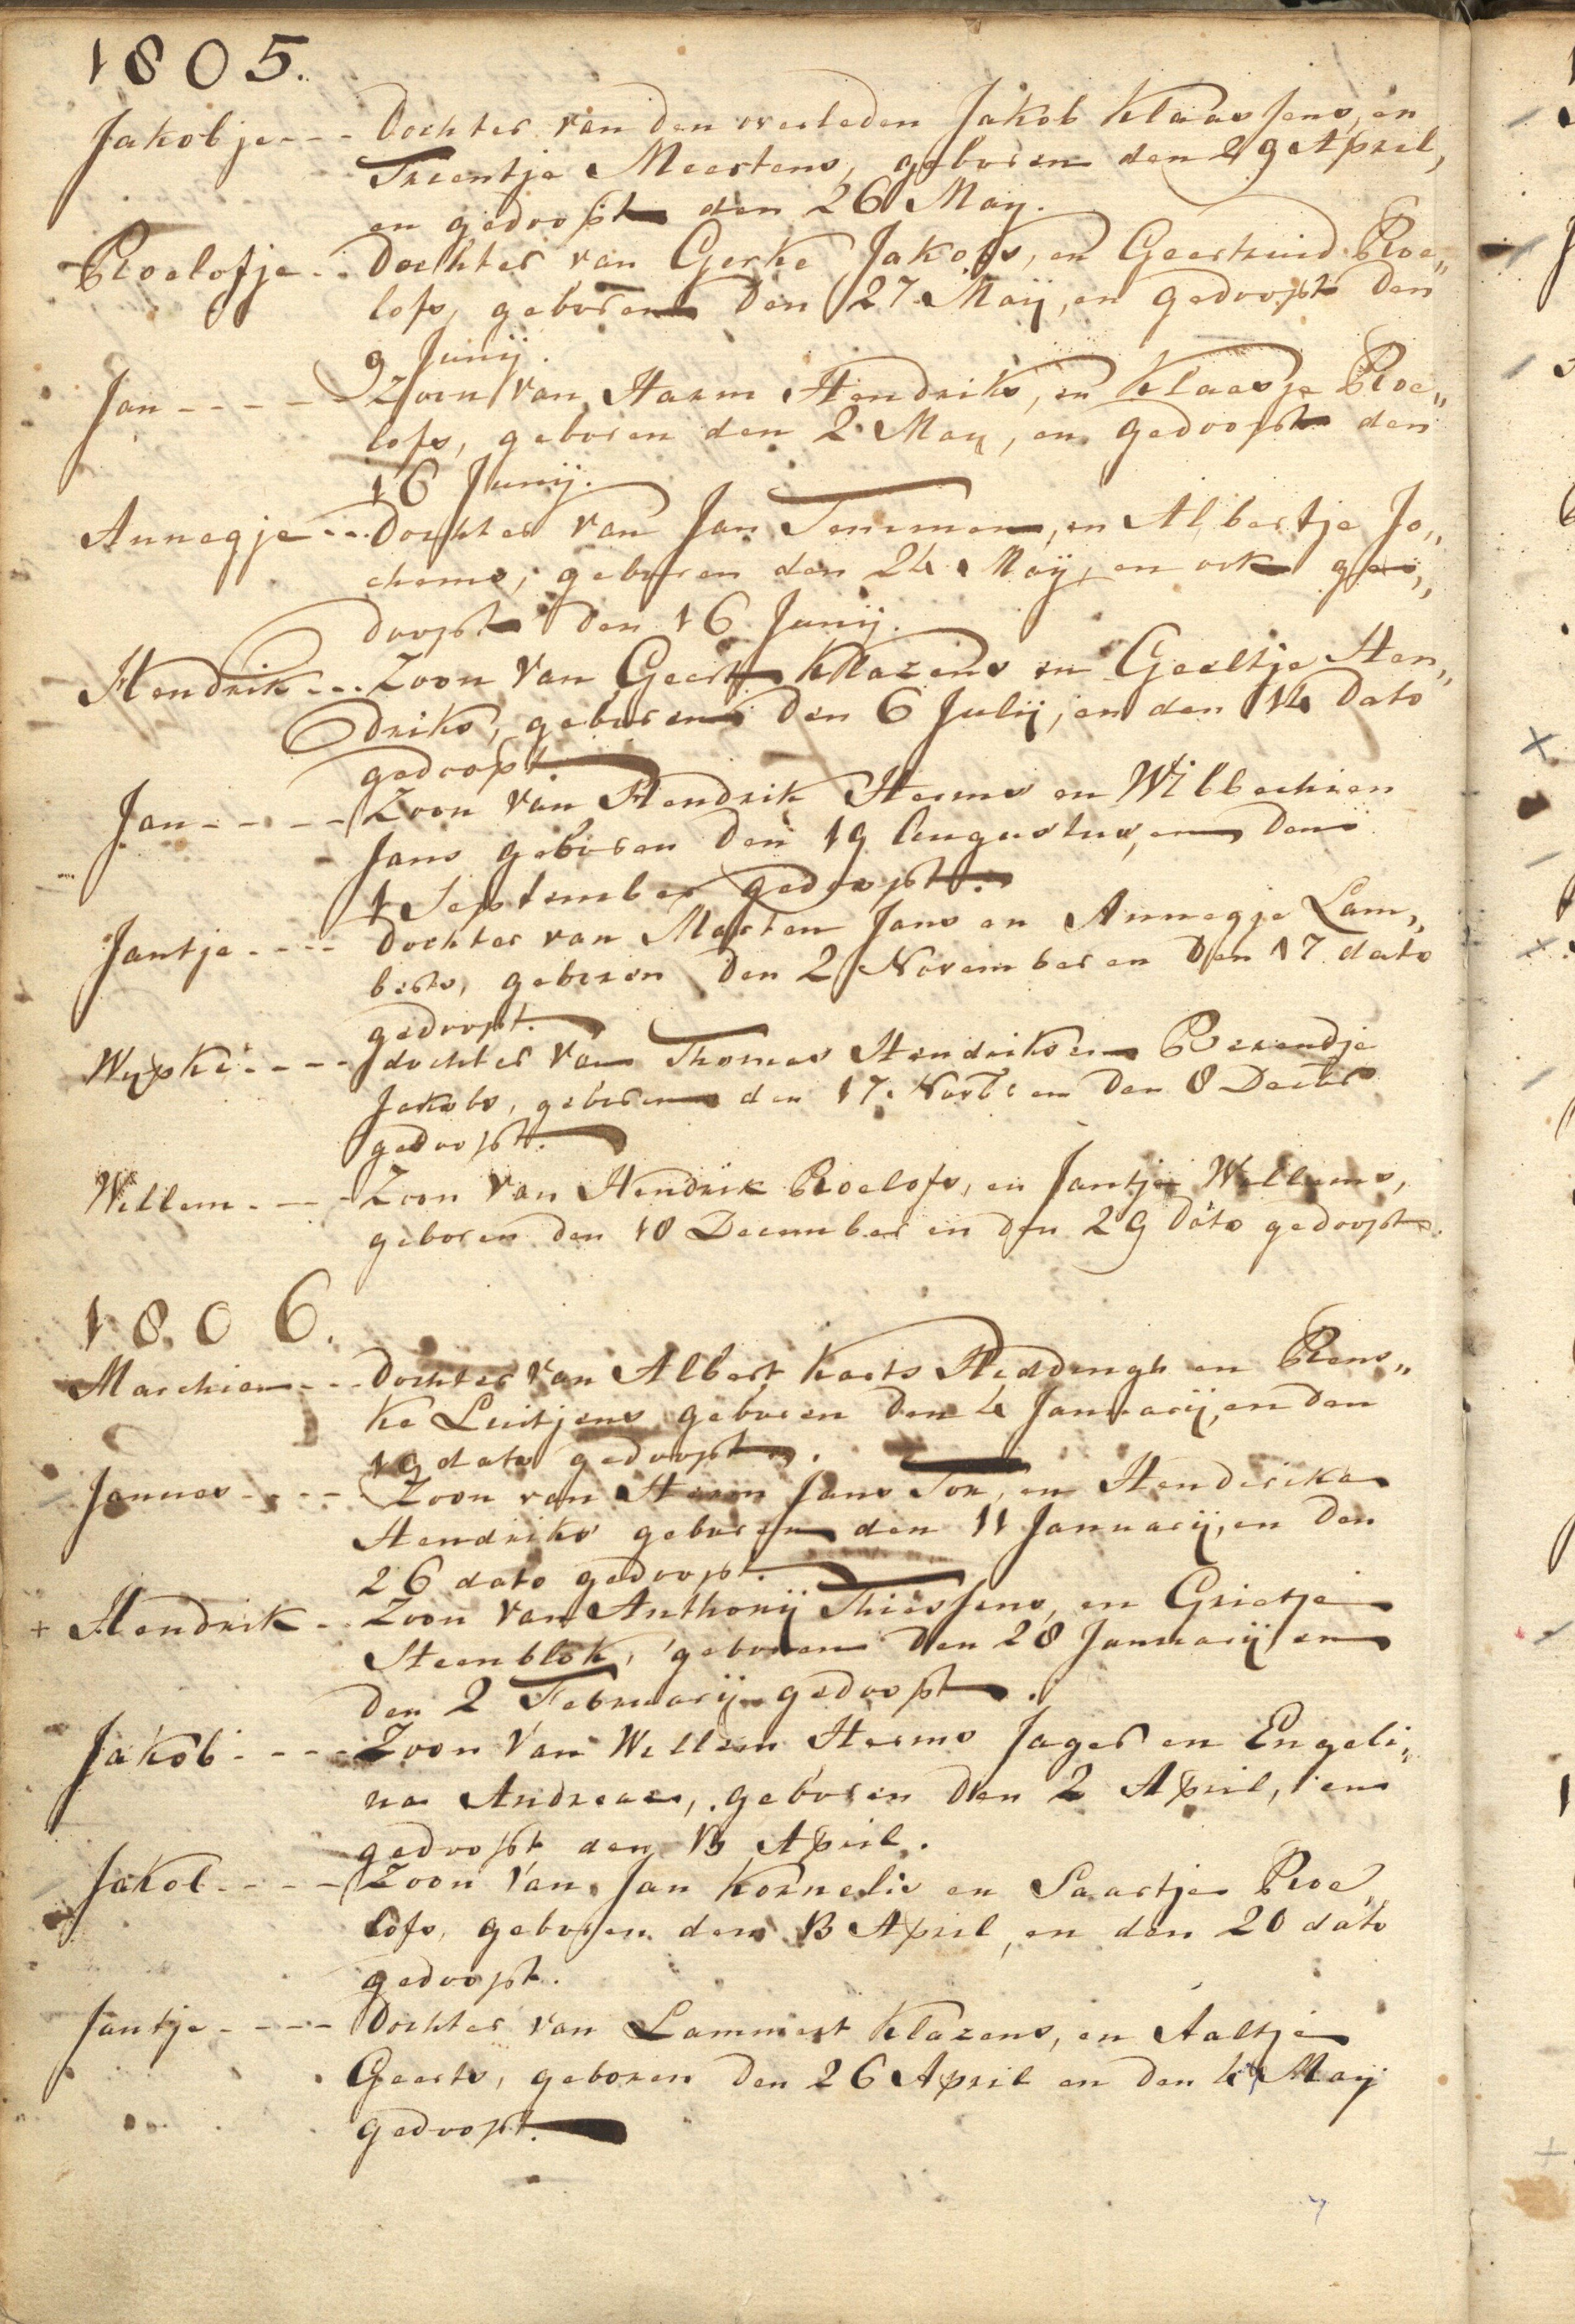 1805.
Jakobje - - - Dochter van den overleden Jakob Klaassens, en
Trientje Meertens, geboren den 29 April,
en gedoopt den 26 May.
Roelofje - - Dochter van Gerke Jakobs, en Geertruid Roe„
lofs, geboren den 27 Maij, en gedoopt den
9 Junij.
Jan - - - - - Zoon van Harm Hendriks, en Klaasje Roe„
lofs, geboren den 2 May, en gedoopt den
16 Junij.
Annegje - - - Dochter van Jan Temmen, en Albertje Jo„
chems, geboren den 24 Maij, en ook ge„
doopt den 16 Junij.
Hendrik - - - Zoon van Geert Klazens en Geeltje Hen„
driks, geboren den 6 Julij, en den 14 dato
gedoopt.
Jan - - - - - Zoon van Hendrik Herms en Willechien
Jans geboren den 19 Augustus, en den
1 September gedoopt.
Jantje - - - - Dochter van Marten Jans en Annegje Lam„
berts, geboren den 2 November en den 17 dato
gedoopt.
Wypke - - - - dochter van Thomas Hendriks en Berendje
Jakobs, geboren den 17. Novbr en den 8 Decbr
gedoopt.
Willem - - - - Zoon van Hendrik Roelofs, en Jantje Willems,
geboren den 18 December en den 29 dato gedoopt.
1806.
Marchien - - - Dochter van Albert Karts Hiddingh en Rens„
ke Luitjens geboren den 4 Januarij, en den
19 dato gedoopt.
Jannes - - - - Zoon van Harm Jans Ton, en Henderika
Hendriks geboren den 11 Januarij, en den
26 dato gedoopt.
+ Hendrik - - Zoon van Anthonij Thiessens, en Grietje
Steenblok, geboren den 28 Januarij en
den 2 Februarij gedoopt.
Jakob - - - - Zoon van Willem Herms Jager en Engeli„
na Andreas, geboren den 2 April, en
gedoopt den 13 April.
Jakob - - - - Zoon van Jan Kornelis en Saartje Roe„
lofs, geboren den 13 April, en den 20 dato
gedoopt.
Jantje - - - - Dochter van Lammert Klazens, en Aaltje
Geerts, geboren den 26 April en den 4 Maij
gedoopt.